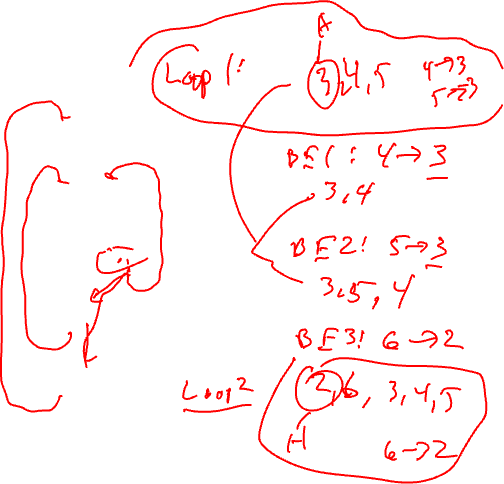 A
Loop 1: 3,4,5 4→3
5→3
BE1: 4→3
3,4
BE2: 5→3
3,5,4
BE3: 6→2
Loop2 2,6, 3,4,5
H
6→2